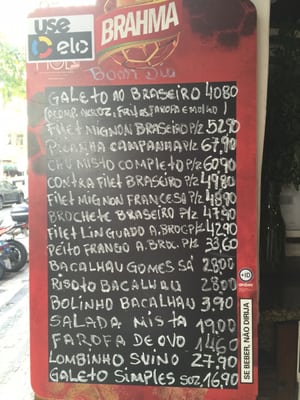 use
elo
BRAHMA
Bom Dia
GALETO NO BRASEIRO 40,80
(ACOMP. ARROZ, FRITAS, FAROFA E MOLHO)
FILET MIGNON BRASEIRO P/2 52,90
PICANHA CAMPANHA P/2 67,90
CHU. MISTO COMPLETO P/2 60,90
CONTRA FILET BRASEIRO P/2 49,80
FILET MIGNON FRANCESA P/2 48,90
BROCHETE BRASEIRO P/2 47,90
FILET LINGUADO A. BROC P/2 42,90
PEITO FRANGO A. BROC. P/2 33,60
BACALHAU GOMES SÁ 28,00
RISOTO BACALHAU 28,00
BOLINHO BACALHAU 3,90
SALADA MISTA 19,00
FAROFA DE OVO 14,60
LOMBINHO SUINO 27,90
GALETO SIMPLES SOZ. 16,90
SE BEBER, NÃO DIRIJA